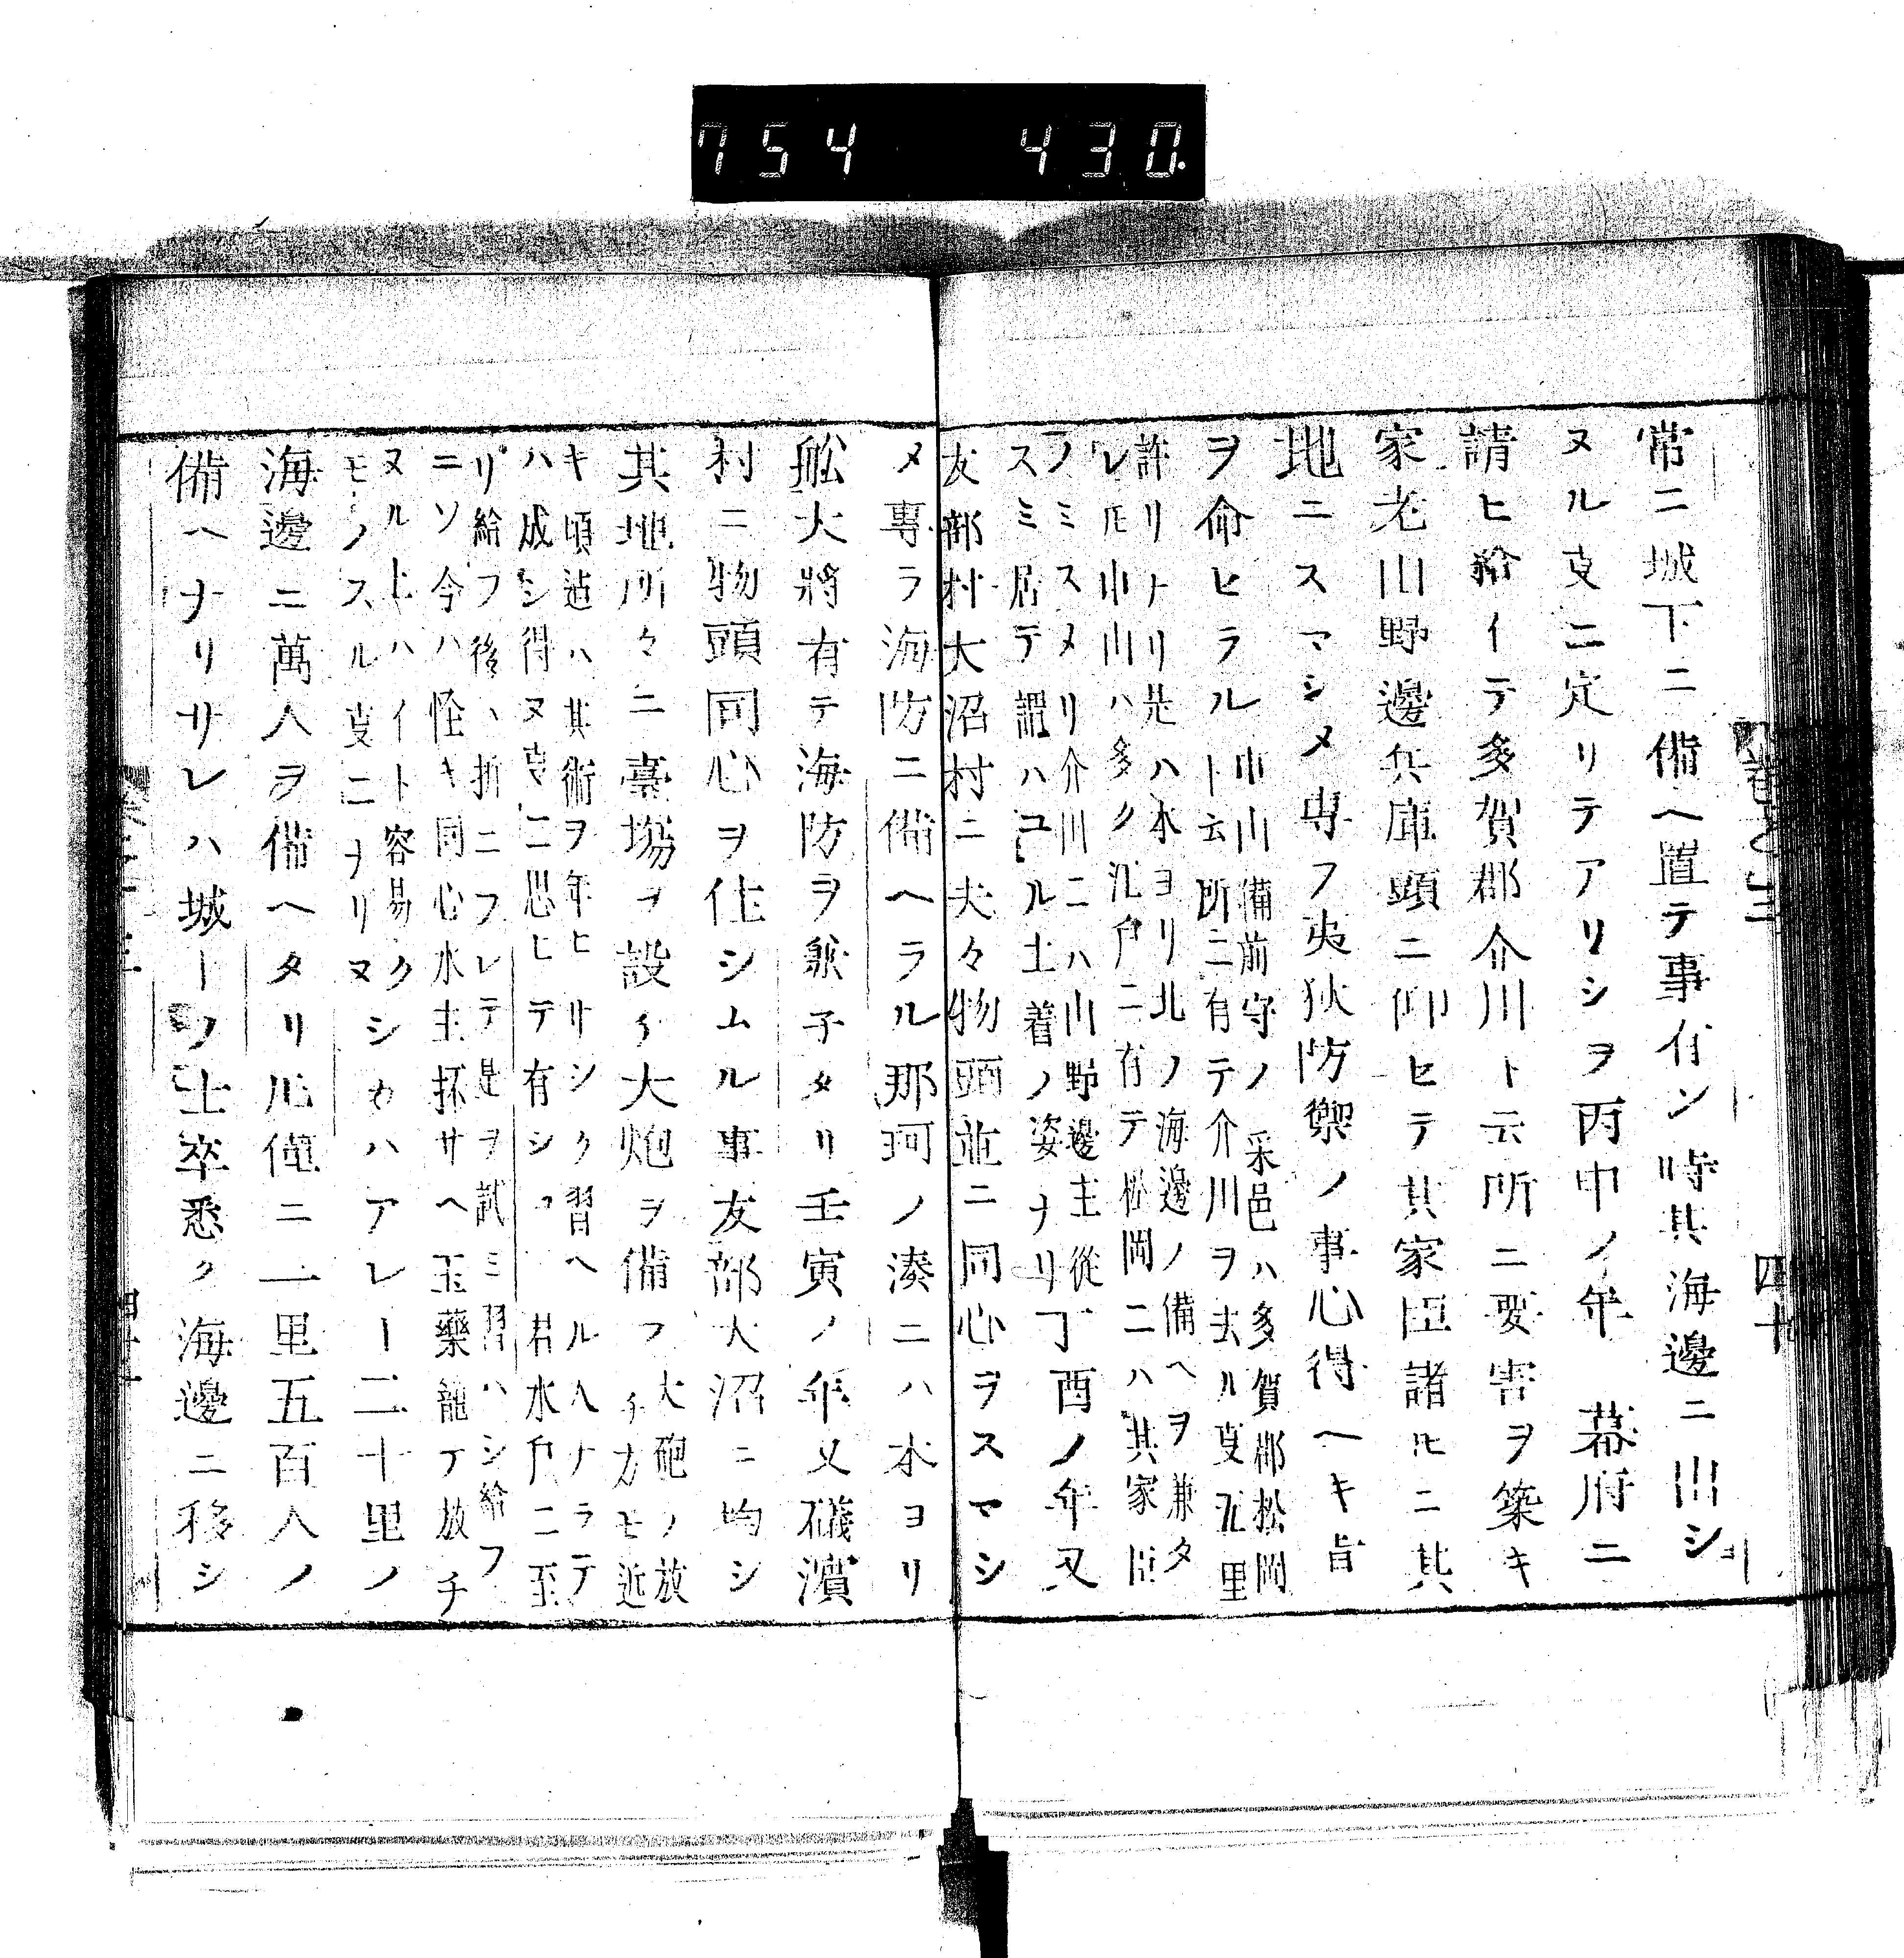 754 430.
常ニ城下ニ備ヘ置テ事有ン時其海邊ニ出シ
ヌル㕝ニ定リテアリシヲ丙申ノ年 幕府ニ
請ヒ給イテ多賀郡介川ト云所ニ要害ヲ築キ
家老山野邊兵庫頭ニ仰ヒテ其家臣諸𪜈ニ其
地ニスマシメ専フ夷狄防禦ノ事心得ヘキ旨
ヲ命ヒラル
中山備前守ノ采邑ハ多賀郡松岡
ト云所ニ有テ介川ヲ去ル㕝五里
許リトリ是ハ本ヨリ北ノ海邊ノ備ヘヲ兼タ
レ𪜈中山ハ多ク江戸ニ有テ松岡ニハ其家臣
ノミスメリ介川ニハ山野邊主從
スミ居テ謂ハユル土着ノ姿ナリ
丁酉ノ年又
友部村大沼村ニ夫々物頭並ニ同心ヲスマシ
メ專ラ海防ニ備ヘラル那珂ノ湊ニハ本ヨリ
舩大將有テ海防ヲ兼子タリ壬寅ノ年又磯濱
村ニ物頭同心ヲ住シムル事友部大沼ニ均シ
其地所々ニ臺場ヲ設ケ大炮ヲ備フ
大砲ノ放
チカモ近
キ頃迠ハ其術ヲ年ヒサシク習ヘル人ナラテ
ハ成シ得ヌ㕝ニ思ヒテ有シヿ 君水戸ニ至
リ給フ後ハ折ニフレテ是ヲ試ミ習ハシ給フ
ニソ今ハ怪キ同心水主抔サヘ玉藥籠テ放チ
ヌル上ハイト容易ク
モノスル㕝ニナリヌ
シカハアレー二十里ノ
海邊ニ萬人ヲ備ヘタリ𪜈僅ニ一里五百人ノ
備ヘナリサレハ城ーノ士卒悉ク海邊ニ移シ